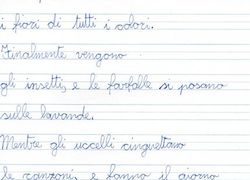 i fiori di tutti i colori.
Finalmente vengono
gli insetti, e le farfalle si posano
sulle lavande.
Mentre gli uccelli cinguettano
le canzoni, e fanno il giorno